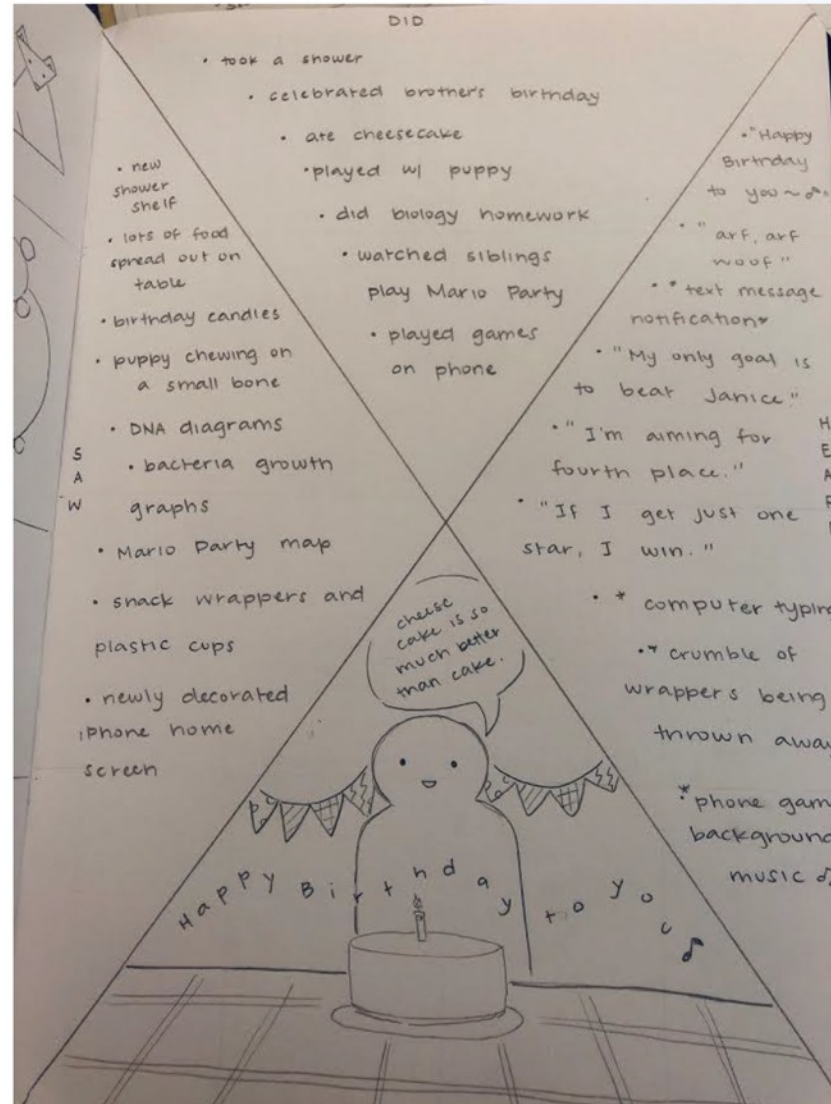 DID
• took a shower
• celebrated brother's birthday
• ate cheesecake
• played w/ puppy
• did biology homework
• watched siblings
play Mario Party
• played games
on phone
SAW
• new
shower
shelf
• lots of food
spread out on
table
• birthday candles
• puppy chewing on
a small bone
• DNA diagrams
• bacteria growth
graphs
• Mario Party map
• snack wrappers and
plastic cups
• newly decorated
iPhone home
screen
• "Happy
Birthday
to you ~ ♪"
• "arf, arf
woof"
• * text message
notification*
• "My only goal is
to beat Janice."
• "I'm aiming for
fourth place."
• "If I get just one
star, I win."
• * computer typing
• * crumble of
wrappers being
thrown away
• * phone game
background
music ♪
cheese
cake is so
much better
than cake.
Happy Birthday to you ♪